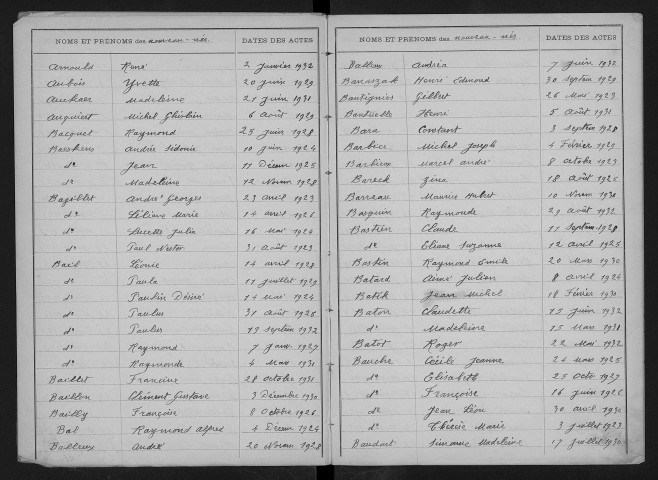 NOMS ET PRÉNOMS des nouveau-nés. DATES DES ACTES
Arnould René 2 Janvier 1932
Aubois Yvette 20 juin 1929
Madeleine 21 juin 1931
Michel Ghislain 6 août 1929
Bacquet Raymond 25 juin 1928
Andrée Sidonie 10 juin 1924
d° Jean 11 Décem 1925
d° Madeleine 12 Novem 1928
André Georges 23 avril 1923
d° Liliane Marie 14 avril 1926
d° Lucette Julia 16 Mai 1924
d° Paul Nestor 31 août 1923
Bail Léonie 14 avril 1928
d° Paula 11 juillet 1929
d° Paulin Désiré 14 mai 1924
d° Paulus 31 août 1928
d° Paulus 13 septem 1932
d° Raymond 7 janv. 1927
d° Raymonde 4 Mars 1931
Baillet Francine 28 octobre 1931
Baillon Clément Gustave 3 Décembre 1930
Bailly Françoise 8 Octobre 1926
Bal Raymond alfred 4 Décem 1924
Bailleux André 20 Novem 1928
NOMS ET PRÉNOMS des nouveau-nés. DATES DES ACTES
Andréa 7 juin 1932
Banaszak Henri Edmond 30 septem 1929
Bantignies Gilbert 26 Mai 1923
Henri 5 Août 1931
Bara Constant 3 septem 1928
Barbier Michel Joseph 4 Février 1929
Barbieux Marcel andré 8 octobre 1923
Bareck Zina 18 Août 1926
Barreau Maurice Hubert 10 Novem 1930
Basquin Raymonde 29 août 1932
Bastien Claude 11 septem 1928
d° Eliane Suzanne 12 avril 1925
Bastin Raymond Emile 20 Mars 1930
Batard Aimé Julien 8 avril 1924
Batik Jean Michel 18 Févrie 1930
Baton Claudette 15 juin 1932
d° Madeleine 15 Mars 1931
Batot Roger 22 Mai 1932
Bauche Cécile Jeanne 24 Mars 1925
d° Elisabeth 25 Octo 1927
d° Françoise 16 juin 1926
d° Jean Léon 30 avril 1930
d° Thérèse Marie 3 juillet 1923
Baudart Simonne Madeleine 17 juillet 1930